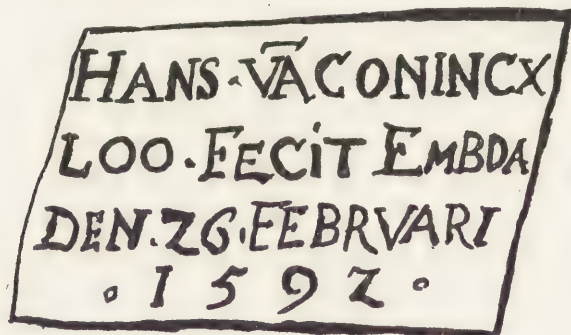 HANS·VĀCONINCX
LOO·FECIT EMBDA
DEN·26·FEBRVARI
·1592·